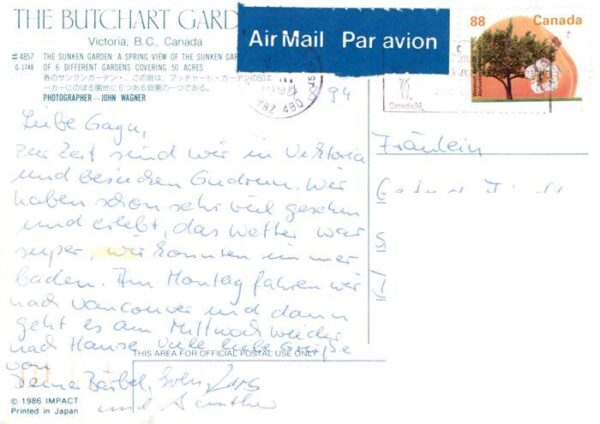 THE BUTCHART GARD
Victoria, B.C., Canada
# 4857 THE SUNKEN GARDEN A SPRING VIEW OF THE SUNKEN GAR
G-1748 OF 6 DIFFERENT GARDENS COVERING 50 ACRES
PHOTOGRAPHER—JOHN WAGNER
Air Mail Par avion
88 Canada
V8Z 4B0
8 94
Liebe Gaga,
Zur Zeit sind wir in Viktoria
und besuchen Gudrun. Wir
haben schon sehr viel gesehen
und erlebt, das Wetter war
super, wir konnten immer
baden. Am Montag fahren wir
nach Vancouver und dann
geht es am Mittwoch wieder
nach Hause. Viele liebe Grüße
von
Deine Bärbel, Lars
und
Fräulein
THIS AREA FOR OFFICIAL POSTAL USE ONLY
© 1986 IMPACT
Printed in Japan